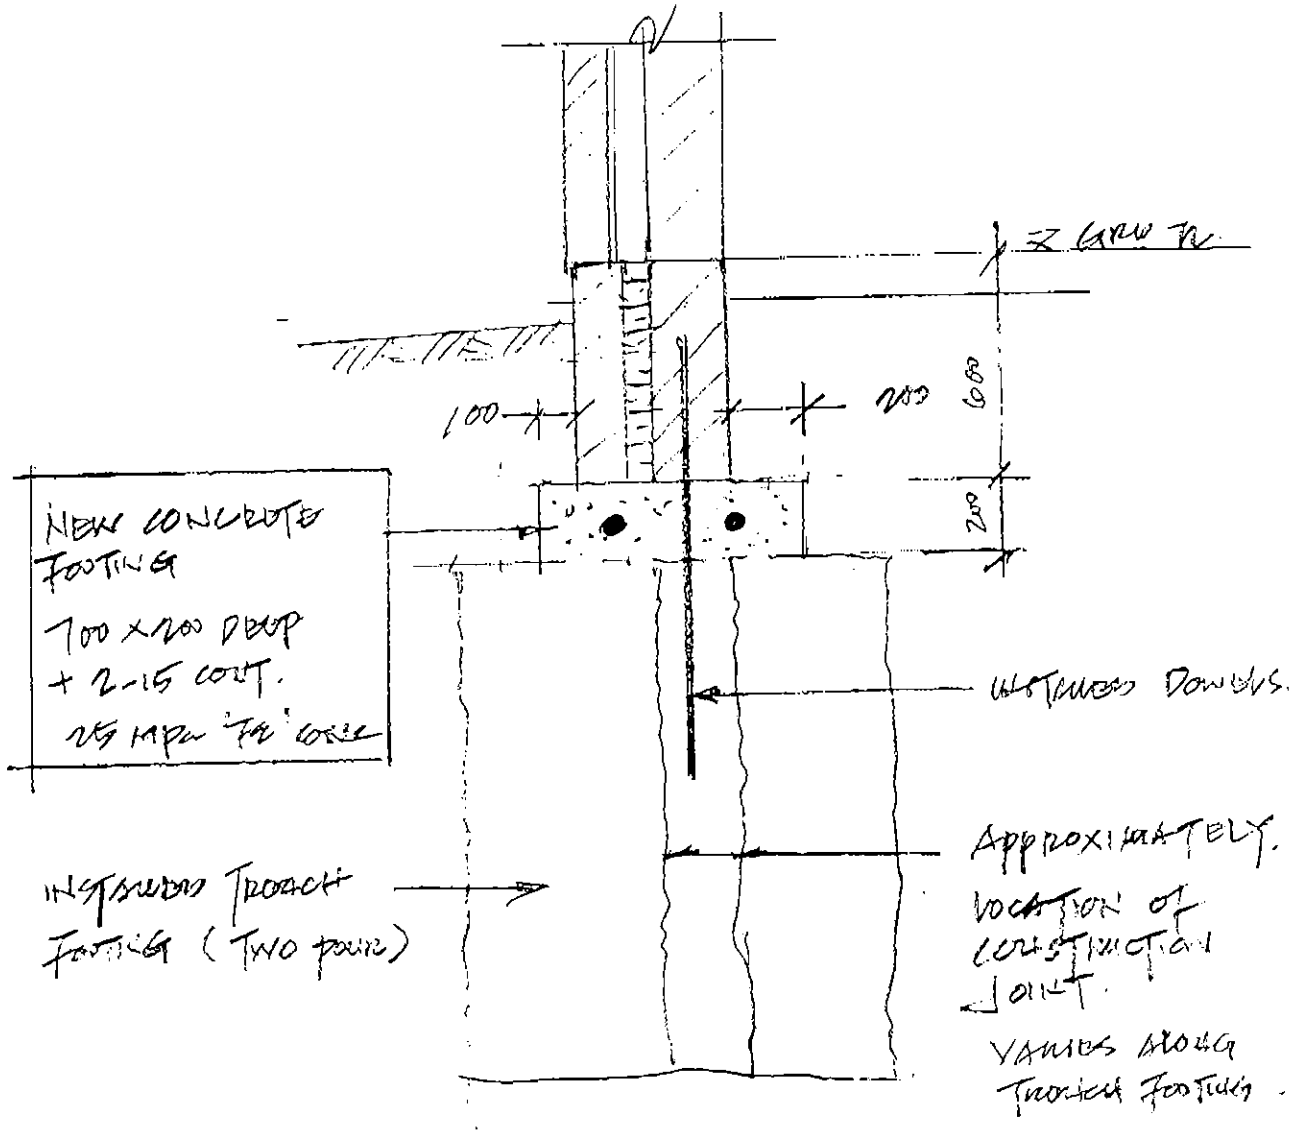 100
200
600
200
NEW CONCRETE
FOOTING
700 x 200 DEEP
+ 2-15 CONT.
25 MPa CONC
INSTALLED DOWELS.
INSTALLED TRENCH
FOOTING (TWO POUR)
APPROXIMATELY.
LOCATION OF
CONSTRUCTION
JOINT.
VARIES ALONG
TRENCH FOOTING.